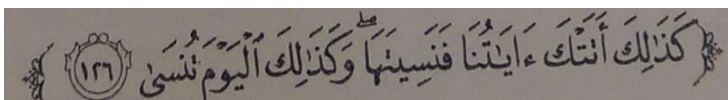 ﴿كَذَٰلِكَ أَتَتْكَ ءَايَٰتُنَا فَنَسِيتَهَا ۖ وَكَذَٰلِكَ ٱلْيَوْمَ تُنسَىٰ ١٢٦﴾